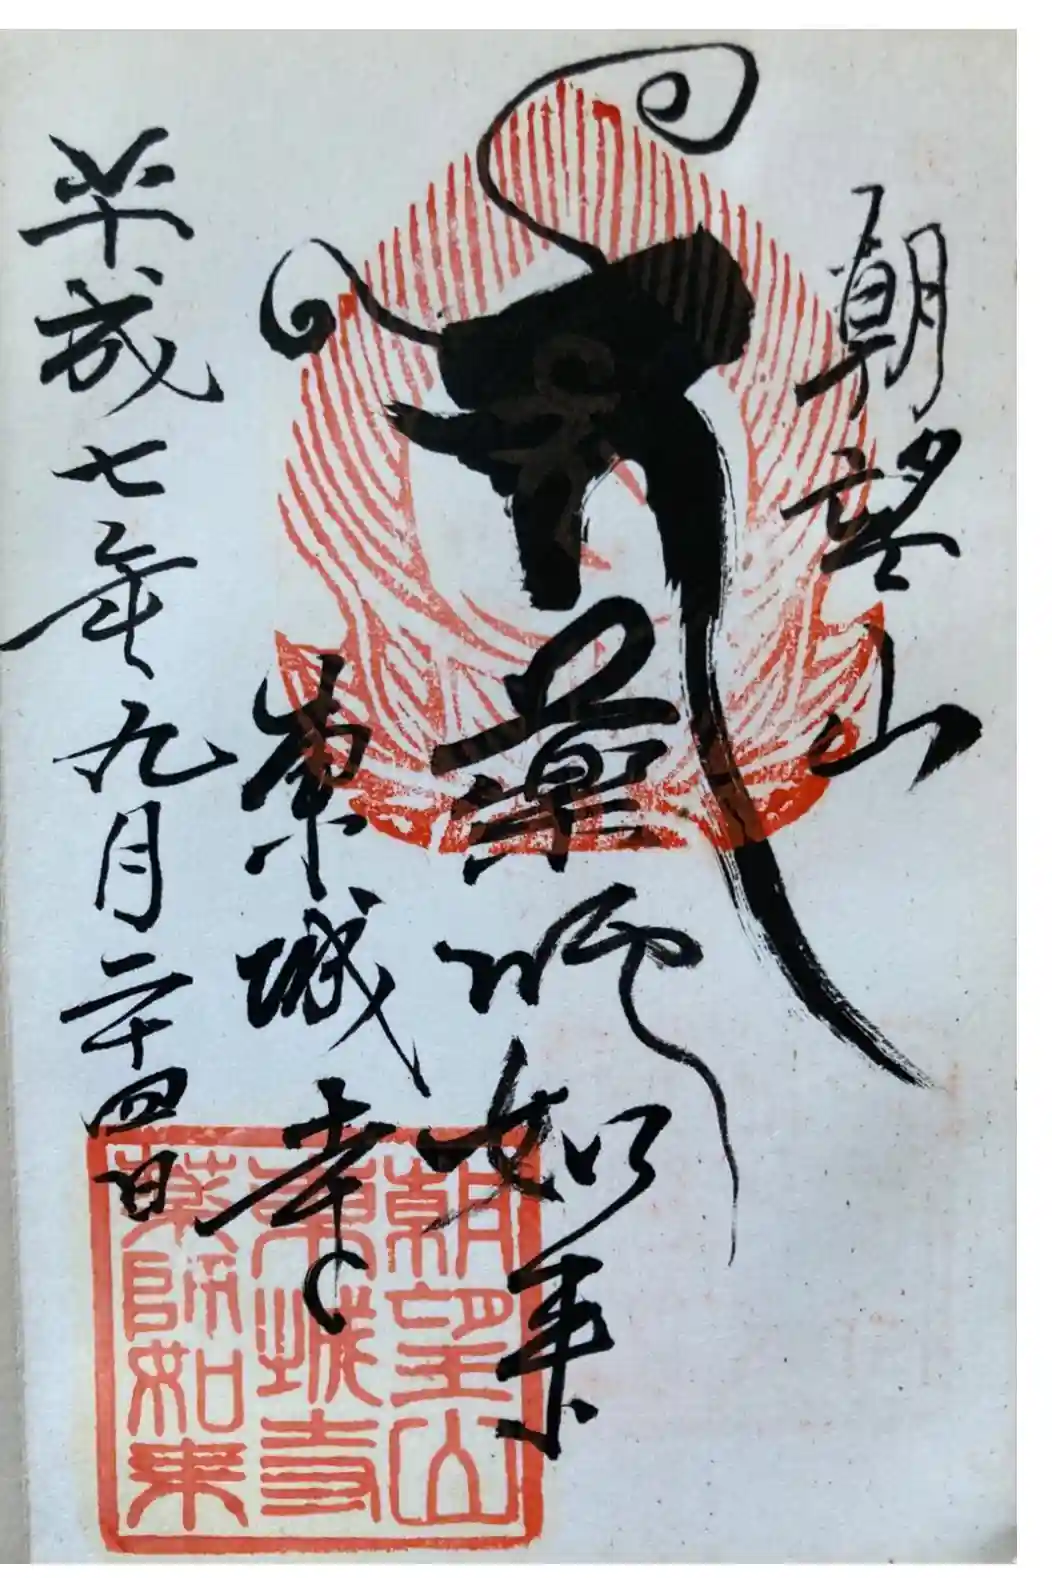 朝望山
薬師如来
東城寺
平成七年九月二十四日
朝望山
東城寺
薬師如来